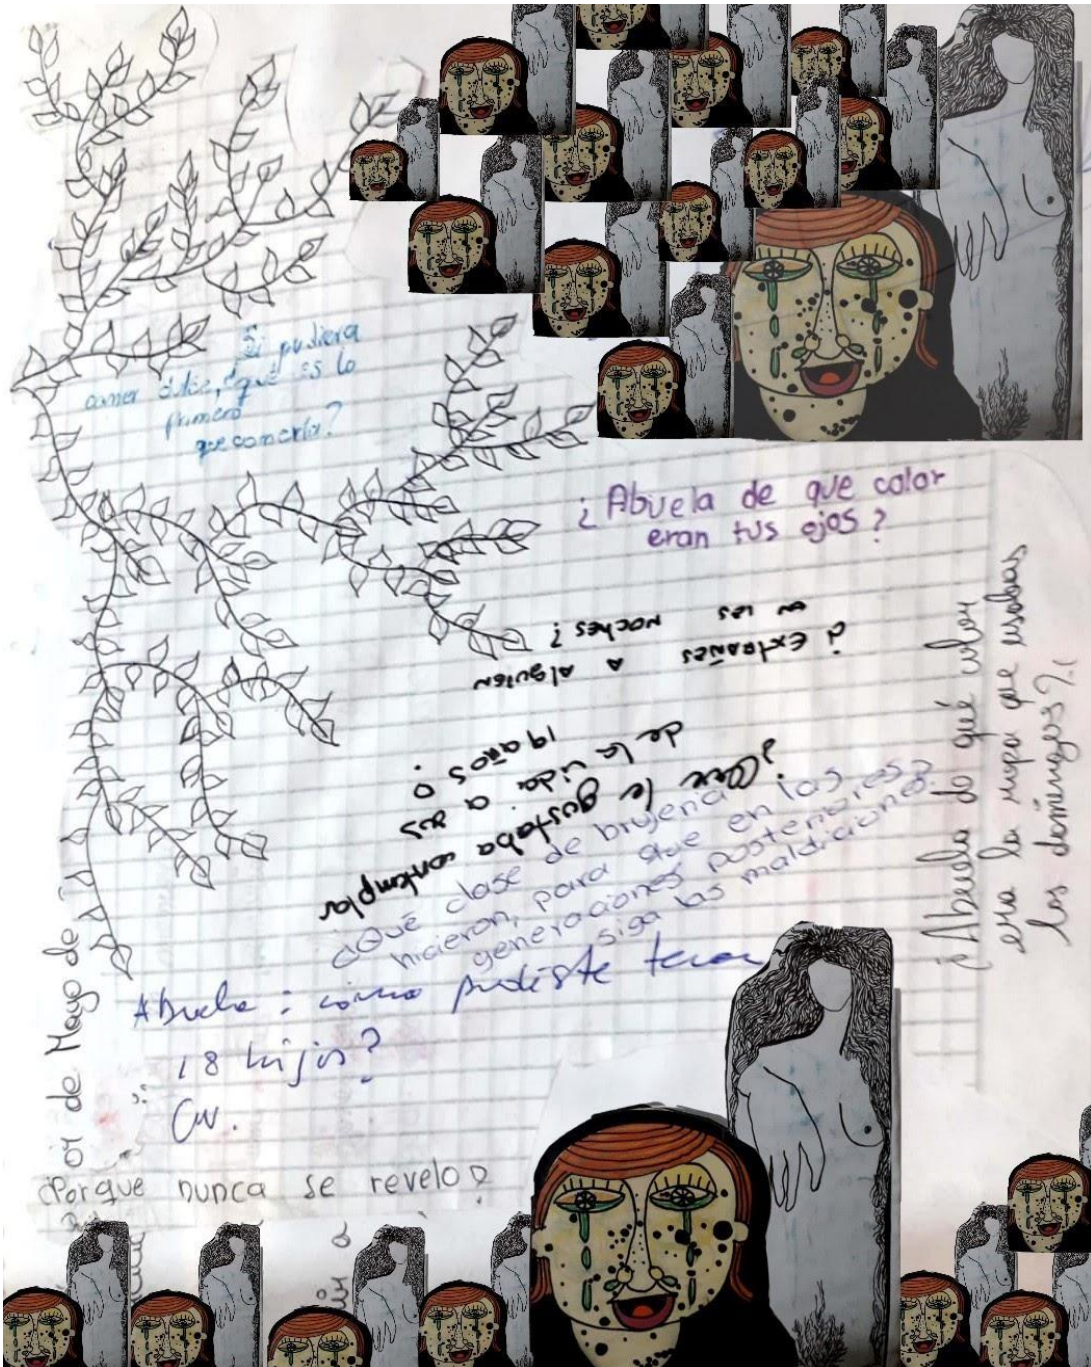 Si pudiera
comer dulce, ¿qué es lo
primero
que comería?
¿Abuela de que color
eran tus ojos?
¿Extrañas a alguien
en las noches?
¿Que le gustaba contemplar
de la vida a sus
19 años?
¿Qué clase de brujería
hicieron, para que en las
generaciones posteriores
siga las maldiciones?
¿Abuela de qué color
era la ropa que usabas
los domingos?
Abuela: como pudiste tener
18 hijos?
¿Porque nunca se revelo?
de Mayo de